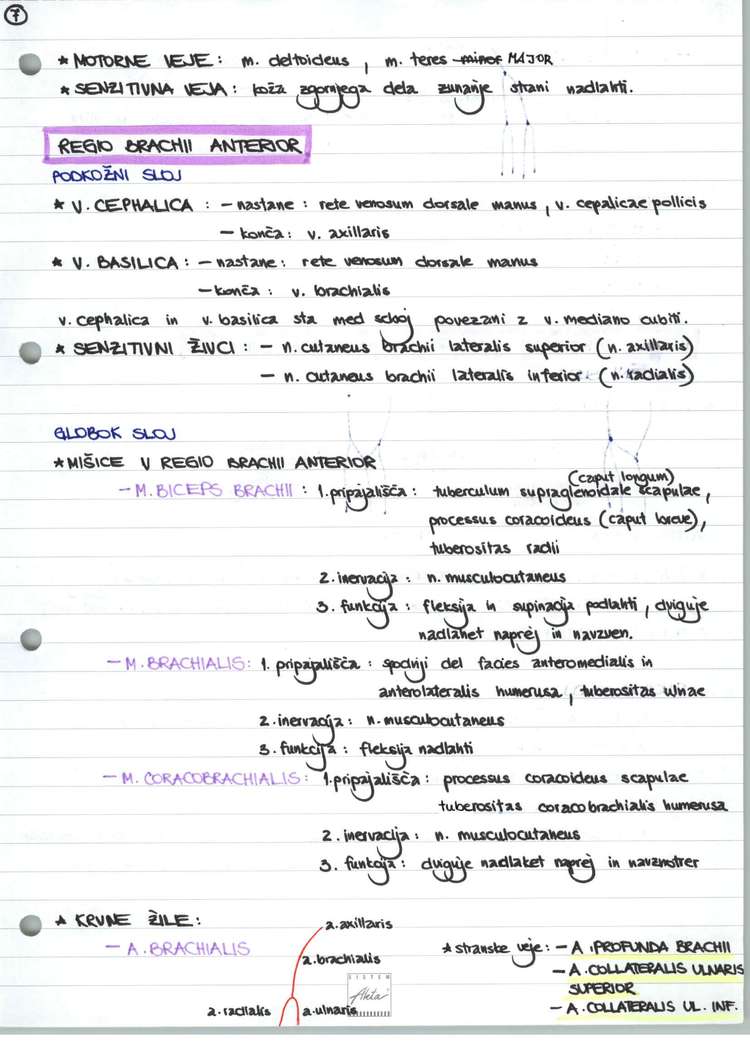 7
* MOTORNE VEJE: m. deltoideus, m. teres minor MAJOR
* SENZITIVNA VEJA: koža zgornjega dela zunanje strani nadlahti.
REGIO BRACHII ANTERIOR
PODKOŽNI SLOJ
* V. CEPHALICA : – nastane : rete venosum dorsale manus, v. cepalicae pollicis
– konča: v. axillaris
* V. BASILICA : – nastane: rete venosum dorsale manus
– konča : v. brachialis
v. cephalica in v. basilica sta med seboj povezani z v. mediano cubiti.
* SENZITIVNI ŽIVCI : – n. cutaneus brachii lateralis superior (n. axillaris)
– n. cutaneus brachii lateralis inferior. (n. radialis)
GLOBOK SLOJ
* MIŠICE V REGIO BRACHII ANTERIOR
(caput longum)
– M. BICEPS BRACHII : 1. pripajališča : tuberculum supraglenoidale scapulae,
processus coracoideus (caput breve),
tuberositas radii
2. inervacija : n. musculocutaneus
3. funkcija : fleksija in supinacija podlahti, dviguje
nadlahet naprej in navzven.
– M. BRACHIALIS: 1. pripajališča : spodnji del facies anteromedialis in
anterolateralis humerusa, tuberositas ulnae
2. inervacija : n. musculocutaneus
3. funkcija : fleksija nadlahti
– M. CORACOBRACHIALIS: 1. pripajališča : processus coracoideus scapulae
tuberositas coracobrachialis humerusa
2. inervacija : n. musculocutaneus
3. funkcija : dviguje nadlaket naprej in navznotrer
* KRVNE ŽILE :
– A. BRACHIALIS
a. axillaris
a. brachialis
a. radialis
a. ulnaris
* stranske veje : – A. PROFUNDA BRACHII
– A. COLLATERALIS ULNARIS
SUPERIOR
– A. COLLATERALIS UL. INF.
SISTEM
Akta